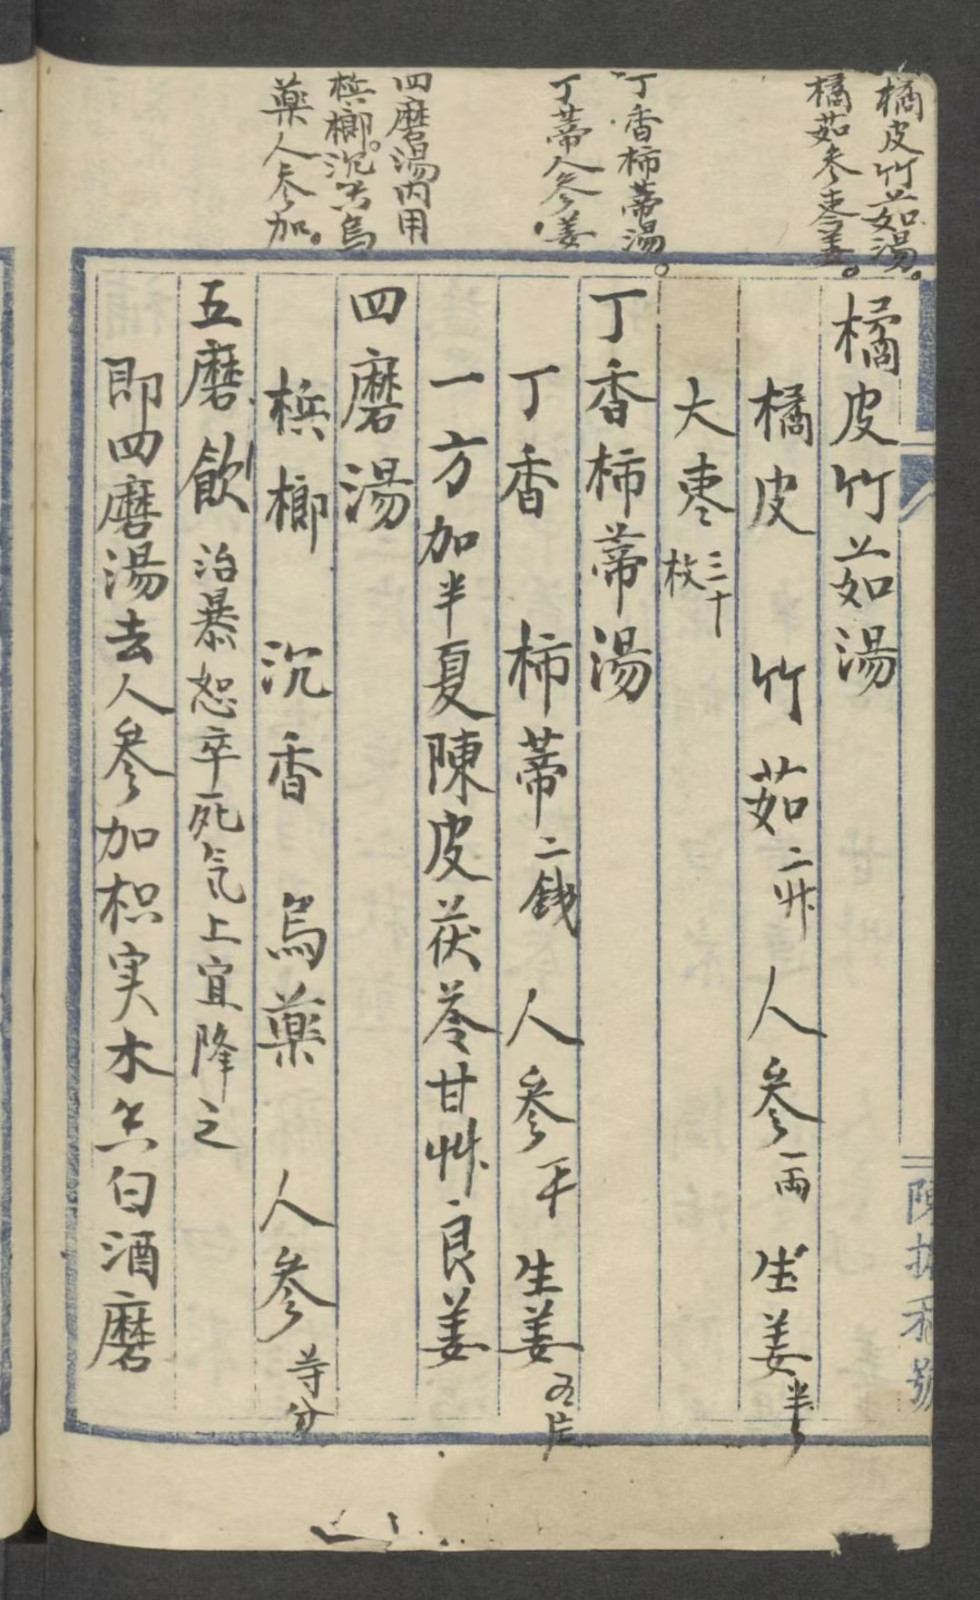 橘皮竹茹湯。
橘茹参枣姜。
丁香柿蒂湯。
丁蒂人参姜
四磨湯內用
槟榔。沉香烏
藥人参加。
橘皮竹茹湯
橘皮 竹茹二升 人參一両 生姜半
大枣三十枚
丁香柿蒂湯
丁香 柿蒂二錢 人參一干 生姜五片
一方加半夏陳皮茯苓甘艸良姜
四磨湯
槟榔 沉香 烏藥 人參等分
五磨飲 治暴怒卒死气上宜降之
即四磨湯去人參加枳实木香白酒磨